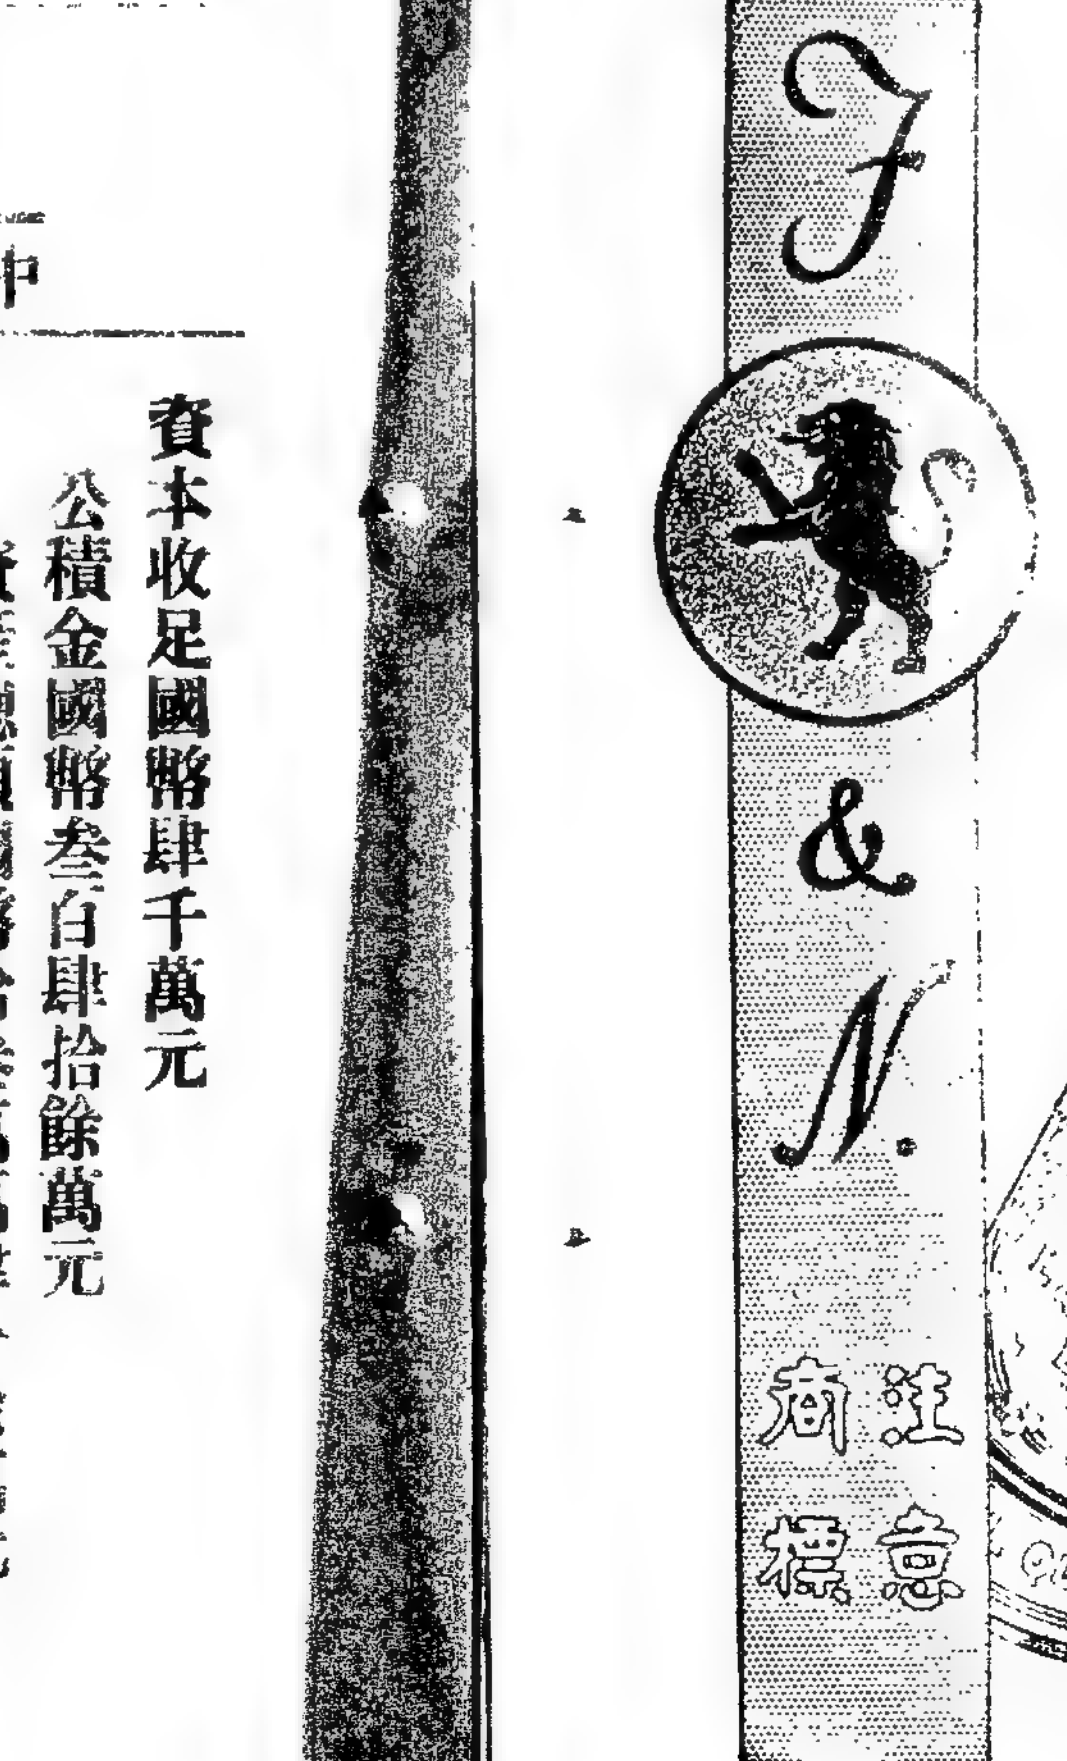 F
&
N.
注意
商標
中
資本收足國幣肆千萬元
公積金國幣叁百肆拾餘萬元